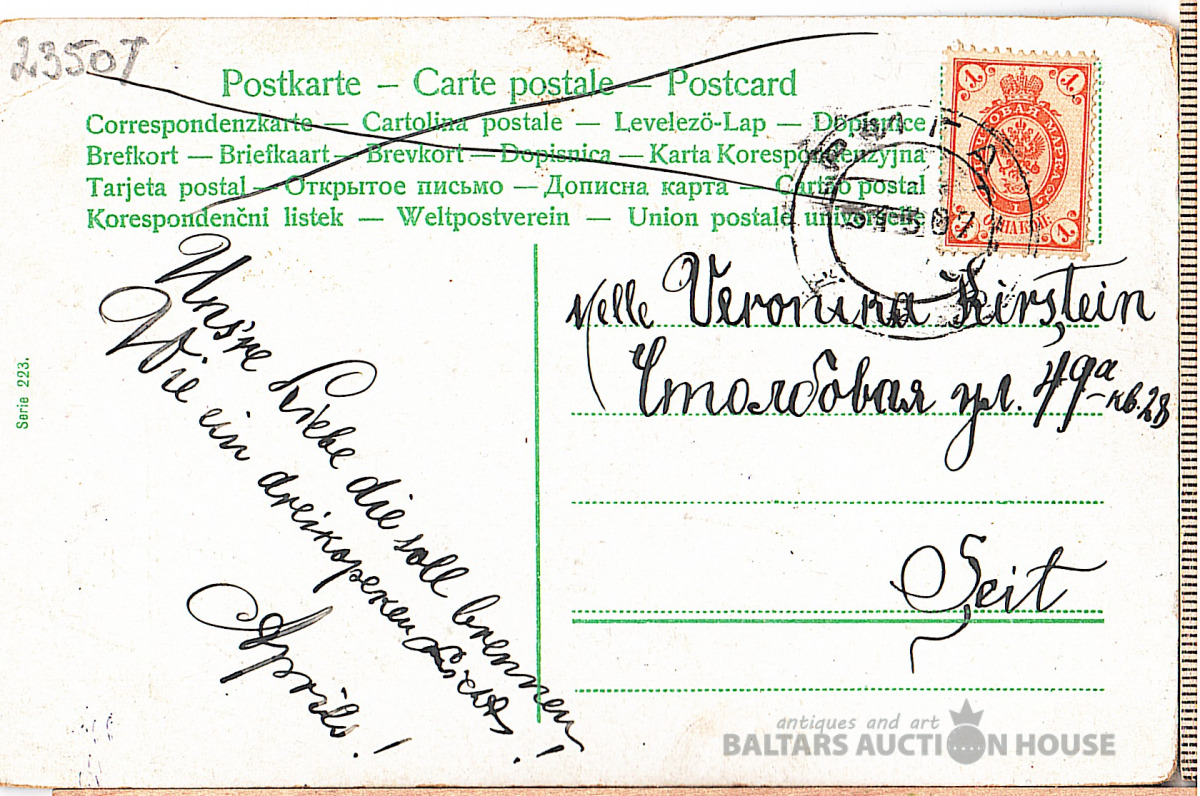 23507
Postkarte – Carte postale – Postcard
Correspondenzkarte — Cartolina postale — Levelezö-Lap — Dopisnice
Brefkort — Briefkaart — Brevkort — Dopisnica — Karta Korespondenzyjna
Tarjeta postal — Открытое письмо — Дописна карта — Cartão postal
Korespondenčni listek — Weltpostverein — Union postale universelle
1 1
1 1
Serie 223.
Uns're Liebe die soll brennen
Wie ein dreikopeken Licht!
Aprils!
Mlle Veronika Kirstein
Столбовая ул. 49а
кв. 28
Seit
antiques and art
BALTARS AUCTION HOUSE